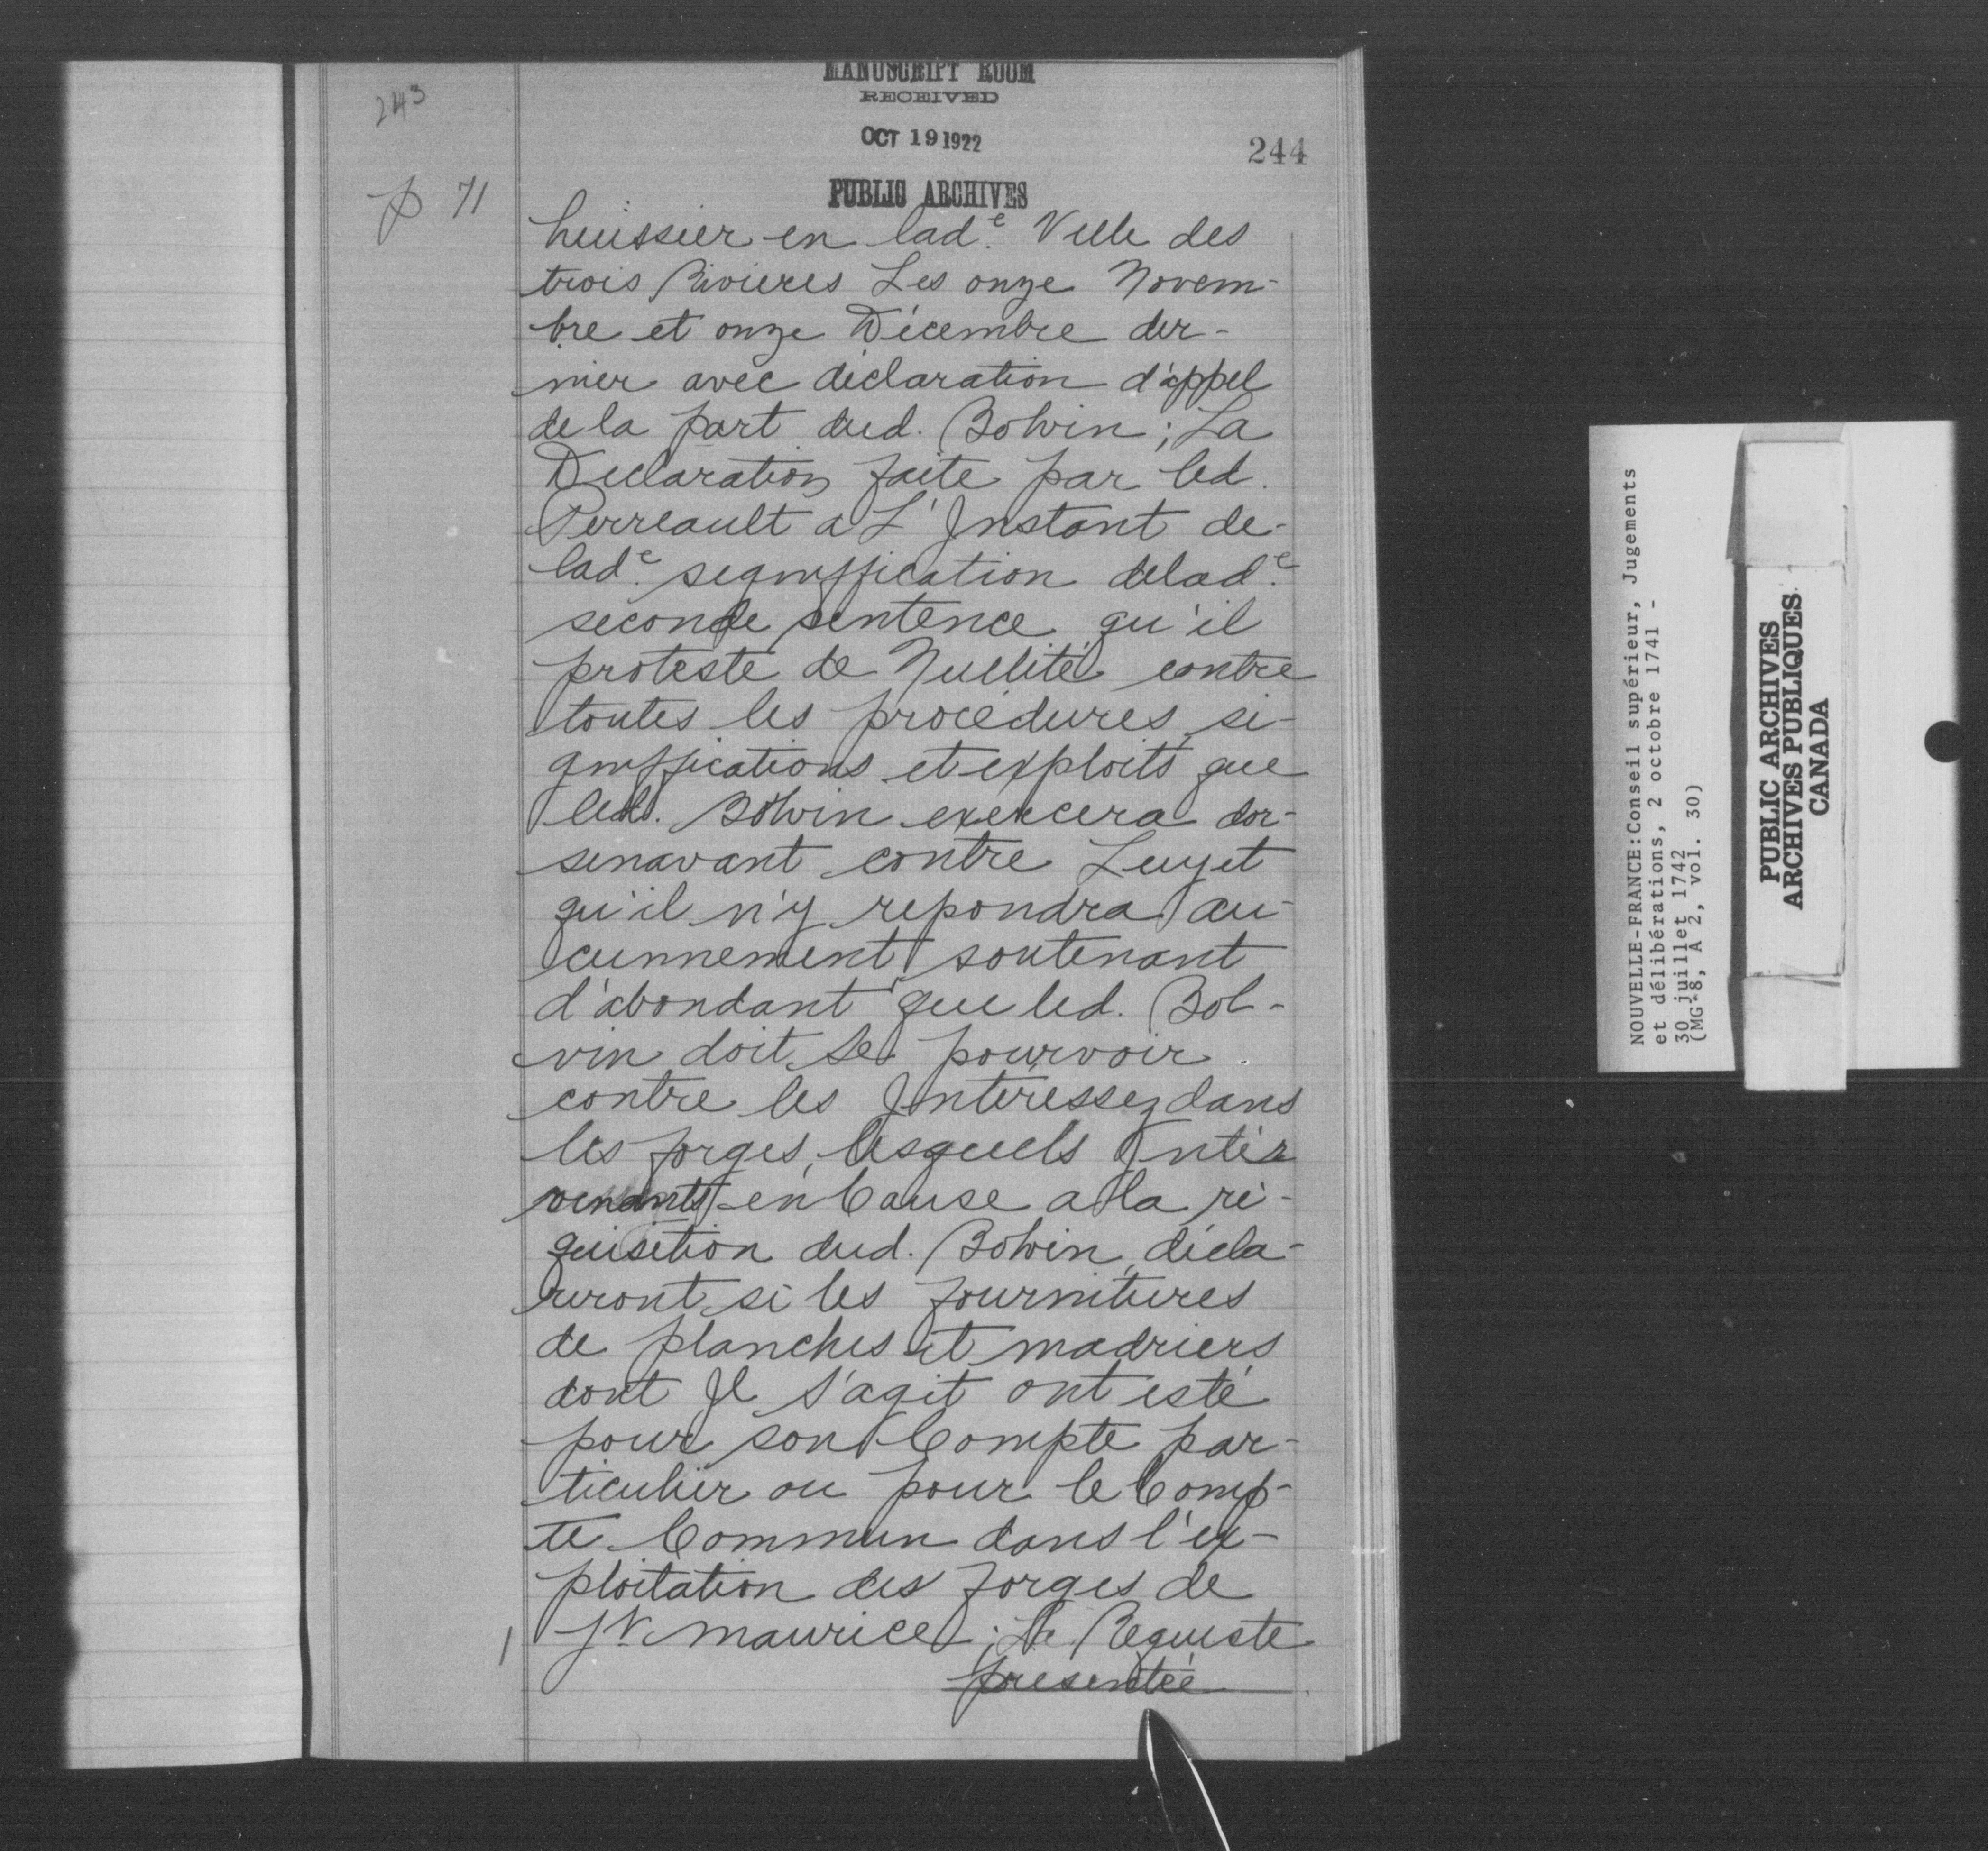 243
MANUSCRIPT ROOM
RECEIVED
OCT 19 1922
244
PUBLIC ARCHIVES
p 71
huissier en lad.e Ville des
trois Rivieres Les onze Novem-
bre et onze Décembre der-
nier avec déclaration d'appel
de la part dud. Bolvin; La
Declaration faite par led.
Perreault a L'Instant de
lad.e signiffication delad.e
seconde sentence qu'il
proteste de Nullité contre
toutes les procédures, si-
gniffications et exploits que
led. Bolvin exercera dor-
senavant contre Luy et
qu'il n'y repondra au-
cunnement soutenant
d'abondant que led. Bol-
vin doit se pourvoir
contre les Interessez dans
les forges, lesquels Inter
venants en Cause a la ré-
quisition dud. Bolvin, décla-
reront si les fournitures
de planches et madriers
dont Il s'agit ont esté
pour son Compte par-
ticulier ou pour le Comp-
te Commun dans l'ex-
ploitation des forges de
St. Maurice; La Requeste
presentée
NOUVELLE-FRANCE:Conseil supérieur, Jugements
et délibérations, 2 octobre 1741 -
30 juillet 1742
(MG 8, A 2, vol. 30)
PUBLIC ARCHIVES
ARCHIVES PUBLIQUES
CANADA